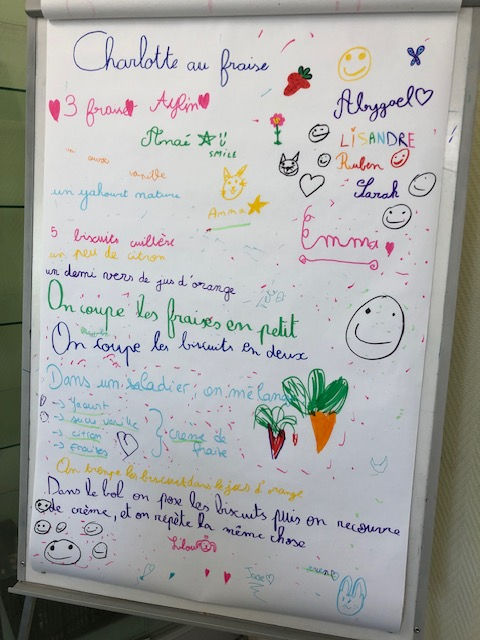 Charlotte au fraise
3 fraises Aylin
Abygael
Anaé
SMILE
LISANDRE
Ruben
un sucre vanille
un yahourt nature
Sarah
Amma
Emma
5 biscuits cuillère
un peu de citron
un demi vers de jus d'orange
On coupe les fraises en petit
On coupe les biscuits en deux
Dans un saladier, on mélange
→ Yaourt
→ sucre vanille
→ citron
→ fraises
crème de fraise
On trempe les biscuit dans le jus d'orange
Dans le bol on pose les biscuits puis on recouvre
de crème, et on répète la même chose
Lilou